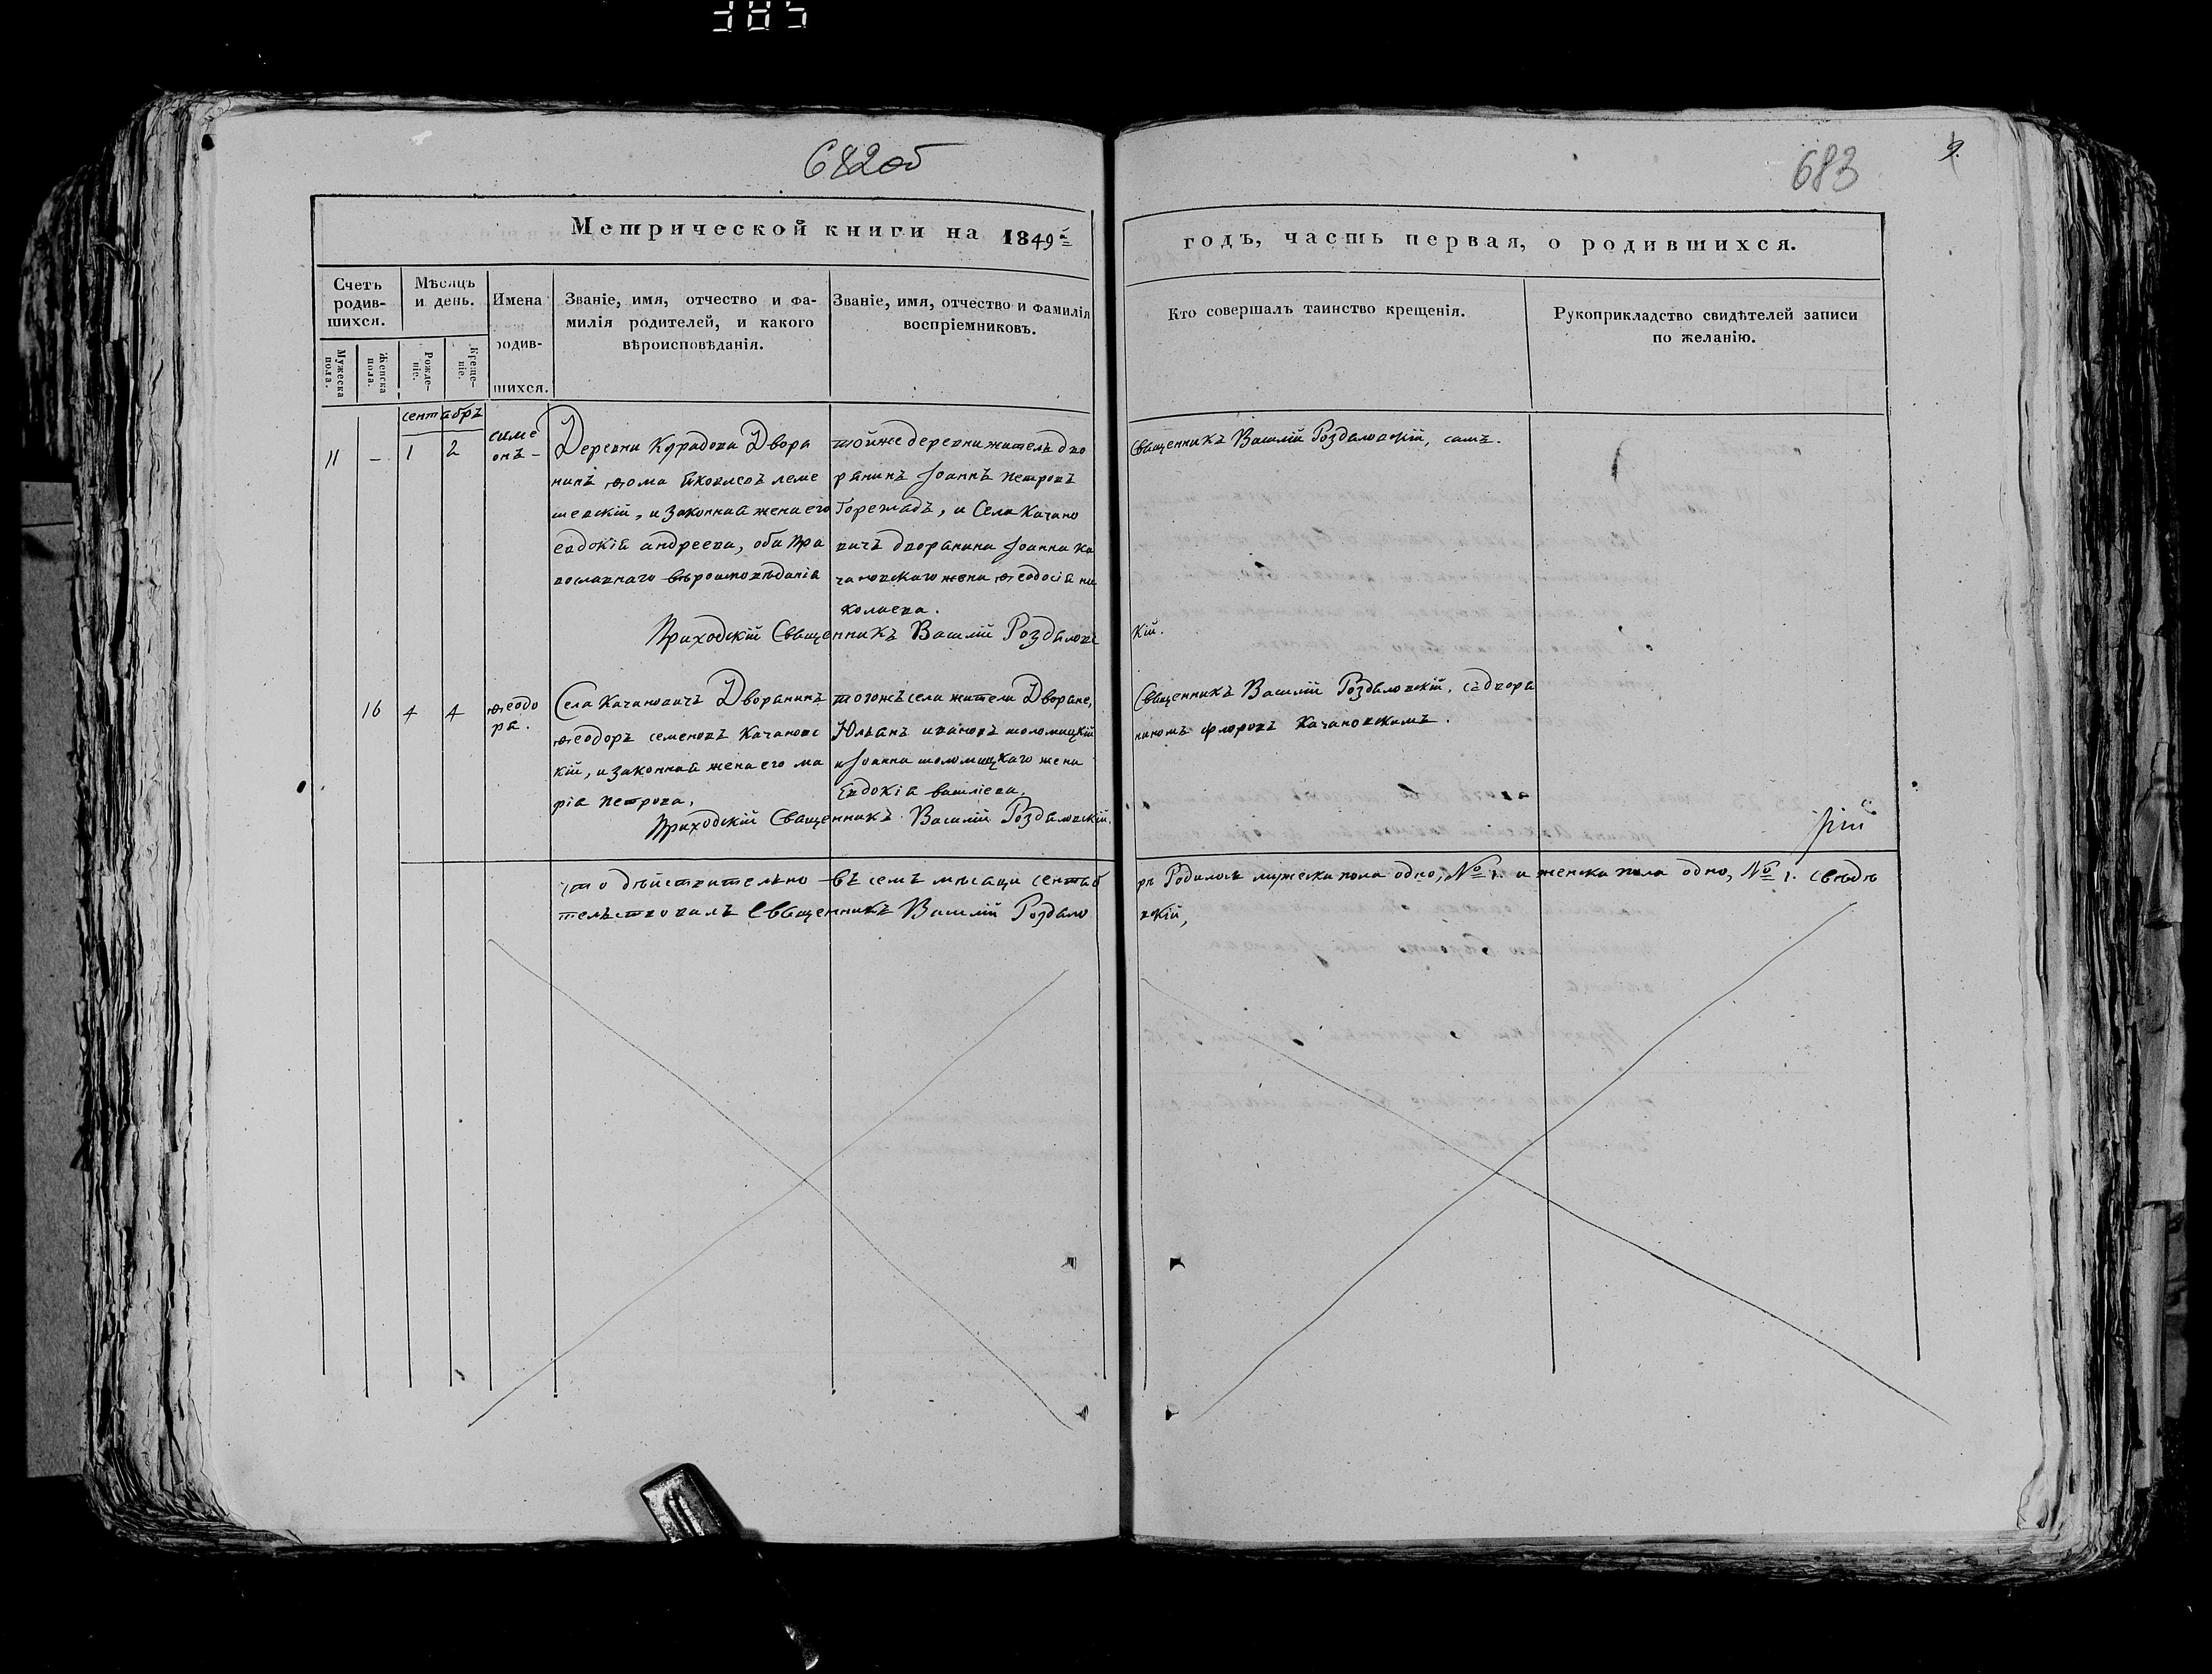 385
682 об
683
9.
Метрической книги на 1849й
годъ, часть первая, о родившихся.
Счетъ родив-
шихся.
Мужеска пола.
Женска пола.
Мѣсяцъ и день.
Рожде-
ніе.
Креще-
ніе.
Имена
родив-
шихся.
Званіе, имя, отчество и фа-
милія родителей, и какого
вѣроисповѣданія.
Званіе, имя, отчество и фамилія
воспріемниковъ.
Кто совершалъ таинство крещенія.
Рукоприкладство свидѣтелей записи
по желанію.
сентабръ
11 – 1 2
симе
онъ –
Деревни Курадова Двора
нинъ Ѳома Яковлевъ леме
шевскій, и законная жена его
евдокія андреева, оба пра
вославнаго вѣроисповѣданія
тойже деревни житель дво
рянинъ Іоаннъ петровъ
Горегладъ, и Села Качано
вичъ дворянина Іоанна ка
чановскаго жена Ѳеодосія ни
колаева.
Священникъ Василій Роздяловскій, самъ.
Приходскій Священникъ Василій Роздяловс
кій.
16 4 4
Ѳеодо
ра.
Села Качановичъ Дворанинъ
Ѳеодоръ семеновъ Качановс
кій, и законная жена его ма
рія петрова,
тогожъ села жители Дворяне,
Юльянъ ивановъ шоломицкій
и Іоанна шоломицкаго жена
Евдокія василіева.
Священникъ Василій Роздяловскій, съ дворя
ниномъ флоромъ Качановскимъ.
Приходскій Священникъ Василій Роздяловскій.
что дѣйствительно въ семъ мѣсяцѣ сентяб
рѣ Родилось мужеска пола одно, № 1. и женска пола одно, № 1. свѣдѣ
тельствовалъ Священникъ Василій Роздяло
вскій,